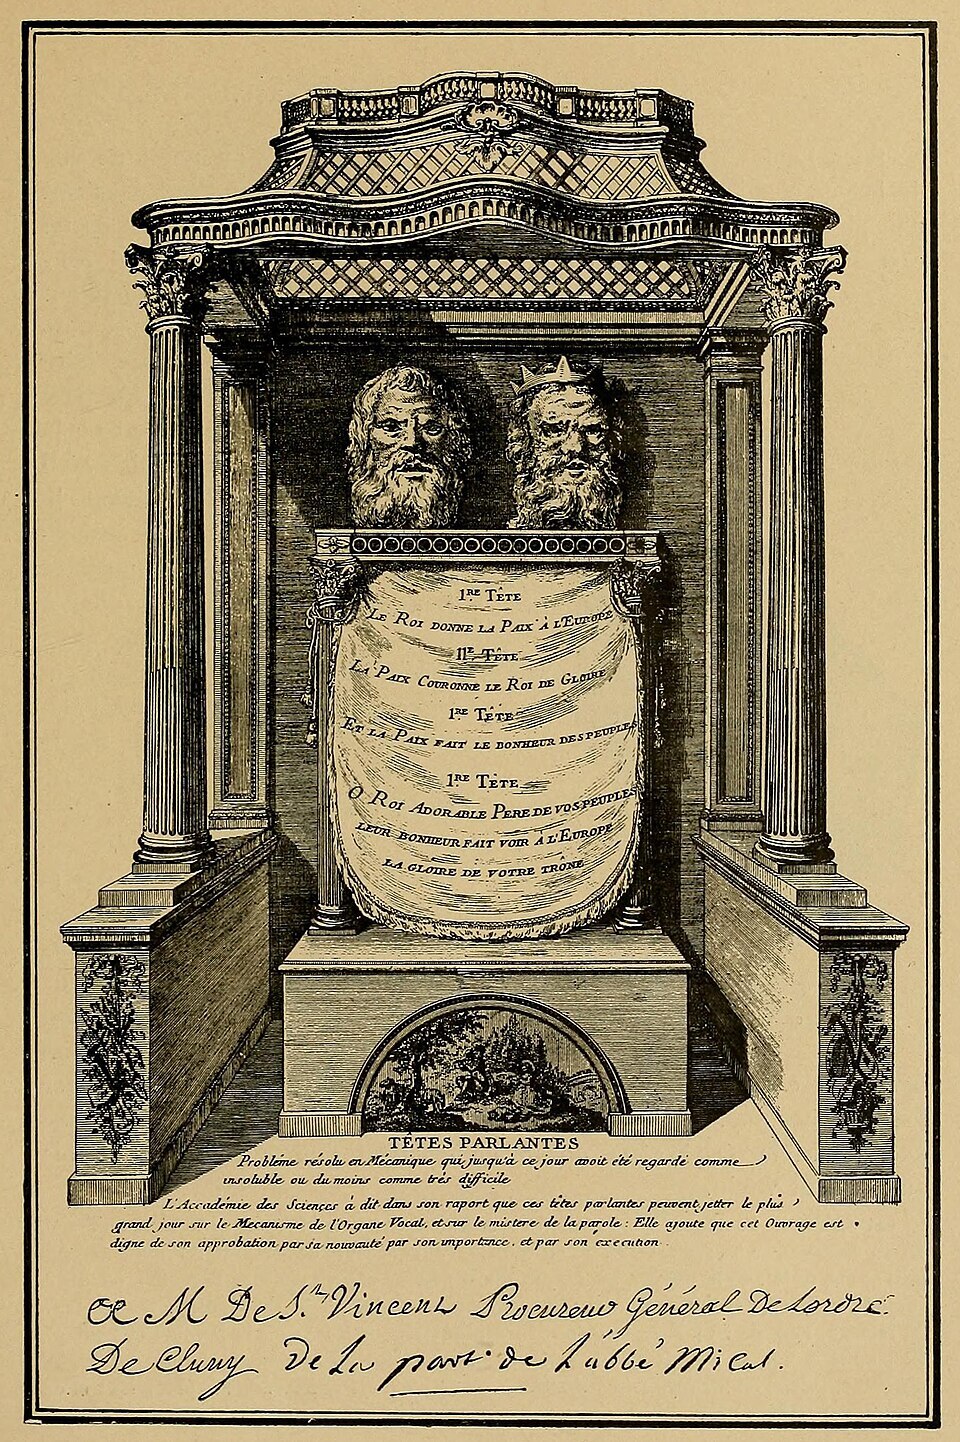 1RE TÊTE
LE ROI DONNE LA PAIX À L'EUROPE
IIE TÊTE
LA PAIX COURONNE LE ROI DE GLOIRE
1RE TÊTE
ET LA PAIX FAIT LE BONHEUR DES PEUPLES
1RE TÊTE
O ROI ADORABLE PERE DE VOS PEUPLES
LEUR BONHEUR FAIT VOIR À L'EUROPE
LA GLOIRE DE VOTRE TRONE
TÊTES PARLANTES
Probléme résolu en Mécanique qui jusqu'à ce jour avoit été regardé comme
insoluble ou du moins comme trés difficile
L'Accadémie des Sciences à dit dans son raport que ces têtes parlantes peuvent jetter le plus
grand jour sur le Mecanisme de l'Organe Vocal, et sur le mistere de la parole : Elle ajoute que cet Ouvrage est
digne de son approbation par sa nouvauté par son importance, et par son execution.
M De St. Vincent Procureur Général De Lordre
De Cluny De La part de L'abbé Mical.